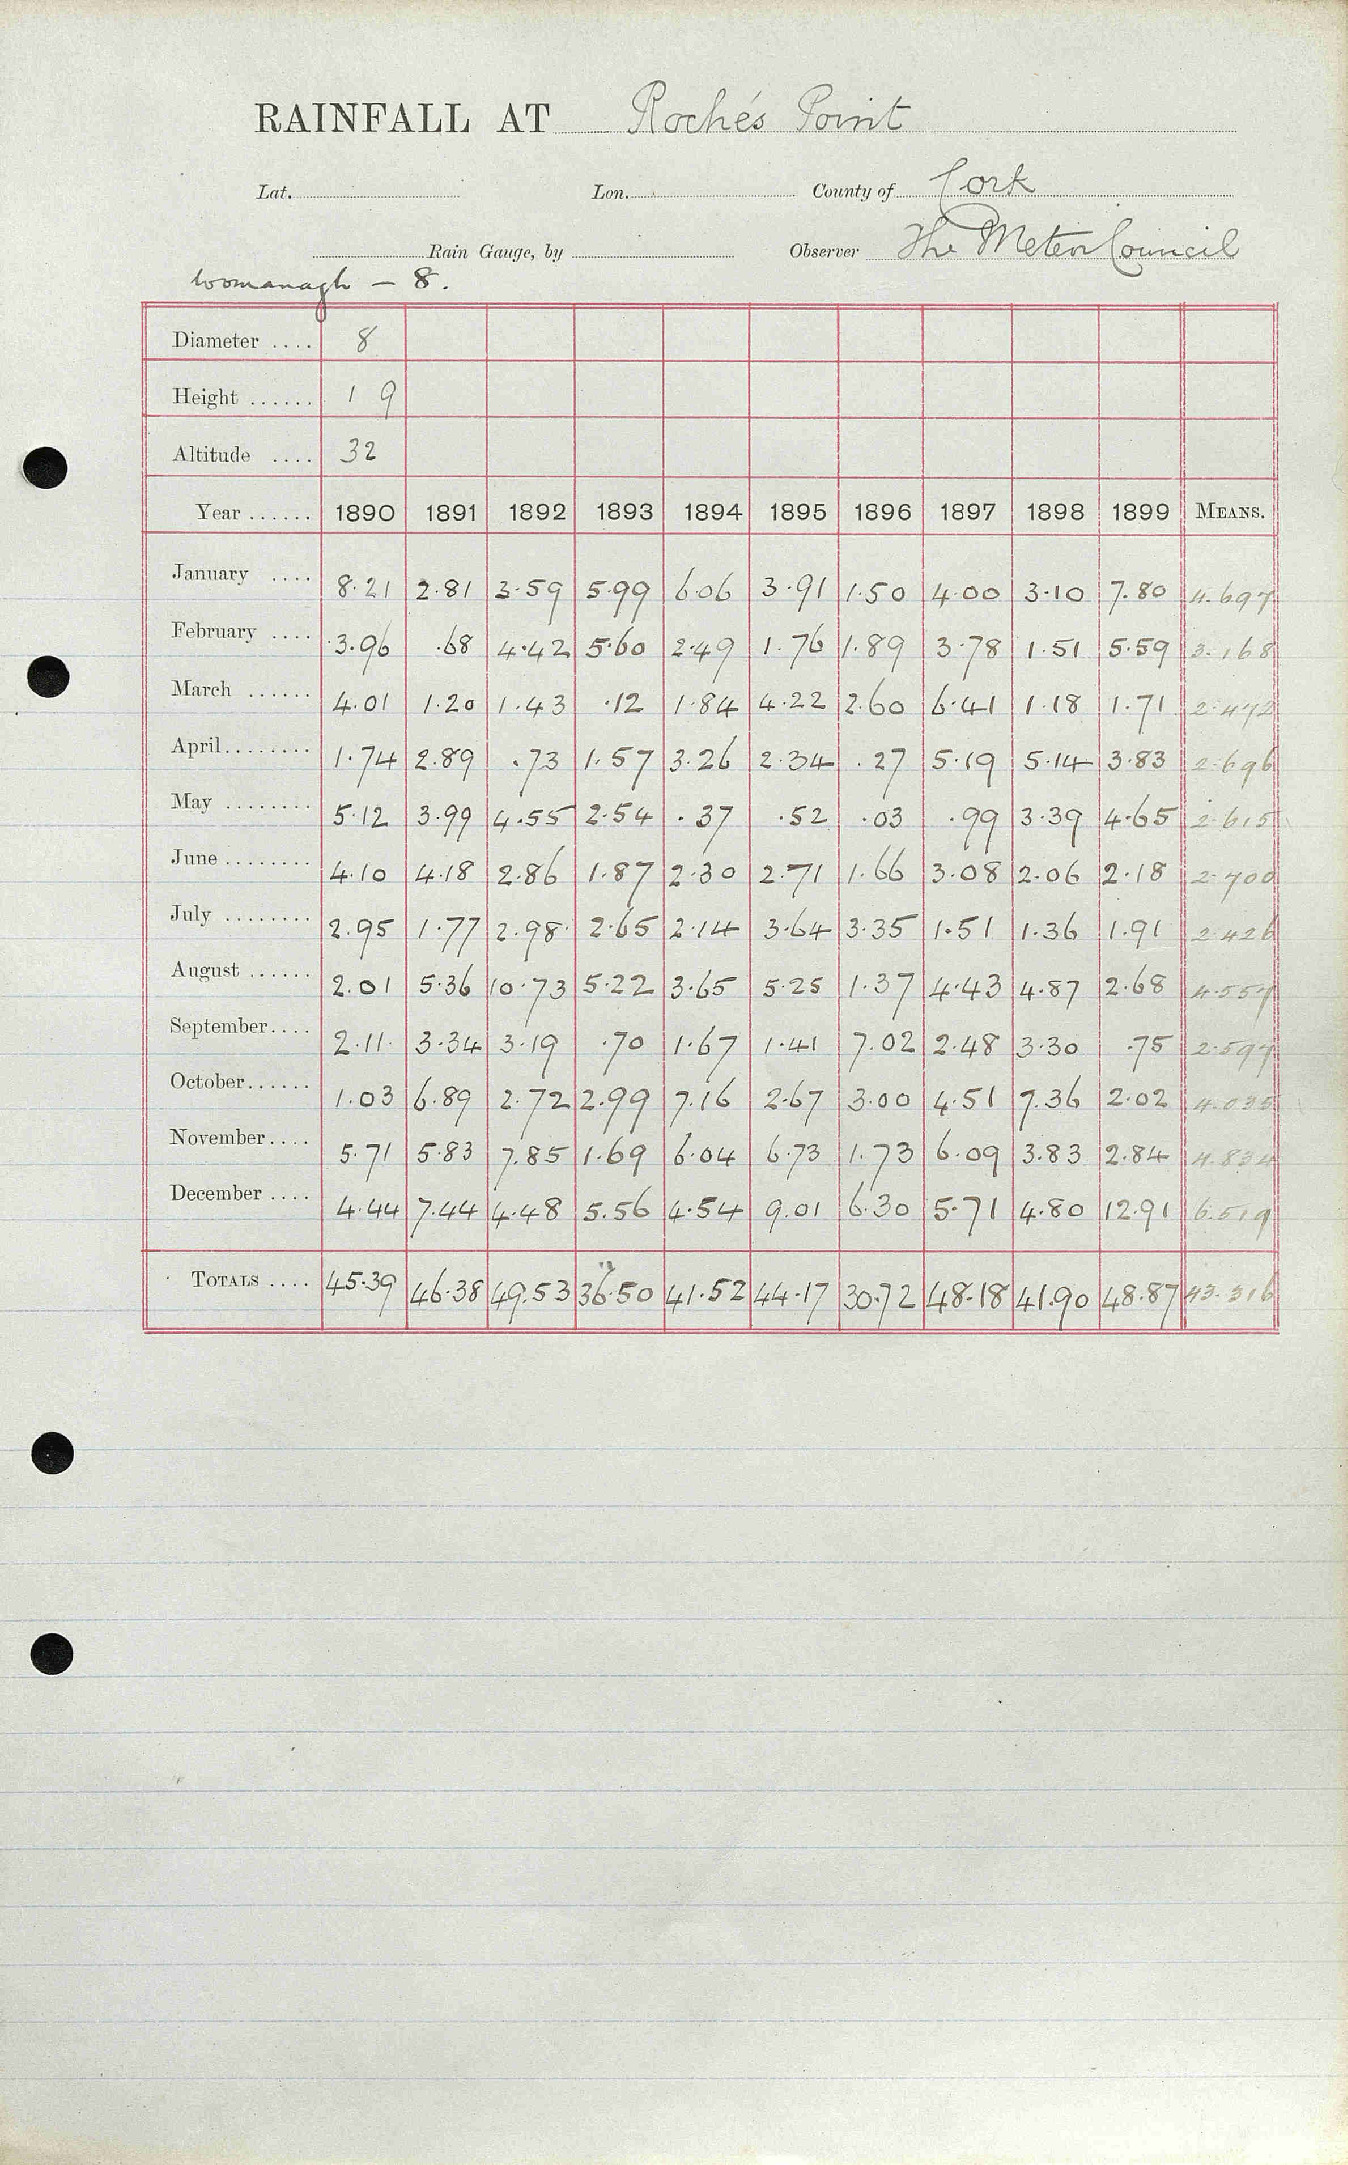 RAINFALL AT Roché's Point
Lat. Lon. County of Cork
Rain Gauge, by Observer The Meteor Council
Womanagh - 8.
Diameter .... 8
Height ...... 1 9
Altitude .... 32
Year ...... 1890 1891 1892 1893 1894 1895 1896 1897 1898 1899 MEANS.
January .... 8.21 2.81 3.59 5.99 6.06 3.91 1.50 4.00 3.10 7.80 4.697
February .... 3.96 .68 4.42 5.60 2.49 1.76 1.89 3.78 1.51 5.59 3.168
March ...... 4.01 1.20 1.43 .12 1.84 4.22 2.60 6.41 1.18 1.71 2.472
April ........ 1.74 2.89 .73 1.57 3.26 2.34 .27 5.19 5.14 3.83 2.696
May ........ 5.12 3.99 4.55 2.54 .37 .52 .03 .99 3.39 4.65 2.615
June ........ 4.10 4.18 2.86 1.87 2.30 2.71 1.66 3.08 2.06 2.18 2.700
July ........ 2.95 1.77 2.98 2.65 2.14 3.64 3.35 1.51 1.36 1.91 2.426
August ...... 2.01 5.36 10.73 5.22 3.65 5.25 1.37 4.43 4.87 2.68 4.557
September .... 2.11 3.34 3.19 .70 1.67 1.41 7.02 2.48 3.30 .75 2.597
October ...... 1.03 6.89 2.72 2.99 7.16 2.67 3.00 4.51 7.36 2.02 4.035
November .... 5.71 5.83 7.85 1.69 6.04 6.73 1.73 6.09 3.83 2.84 4.834
December .... 4.44 7.44 4.48 5.56 4.54 9.01 6.30 5.71 4.80 12.91 6.519
TOTALS .... 45.39 46.38 49.53 36.50 41.52 44.17 30.72 48.18 41.90 48.87 43.316